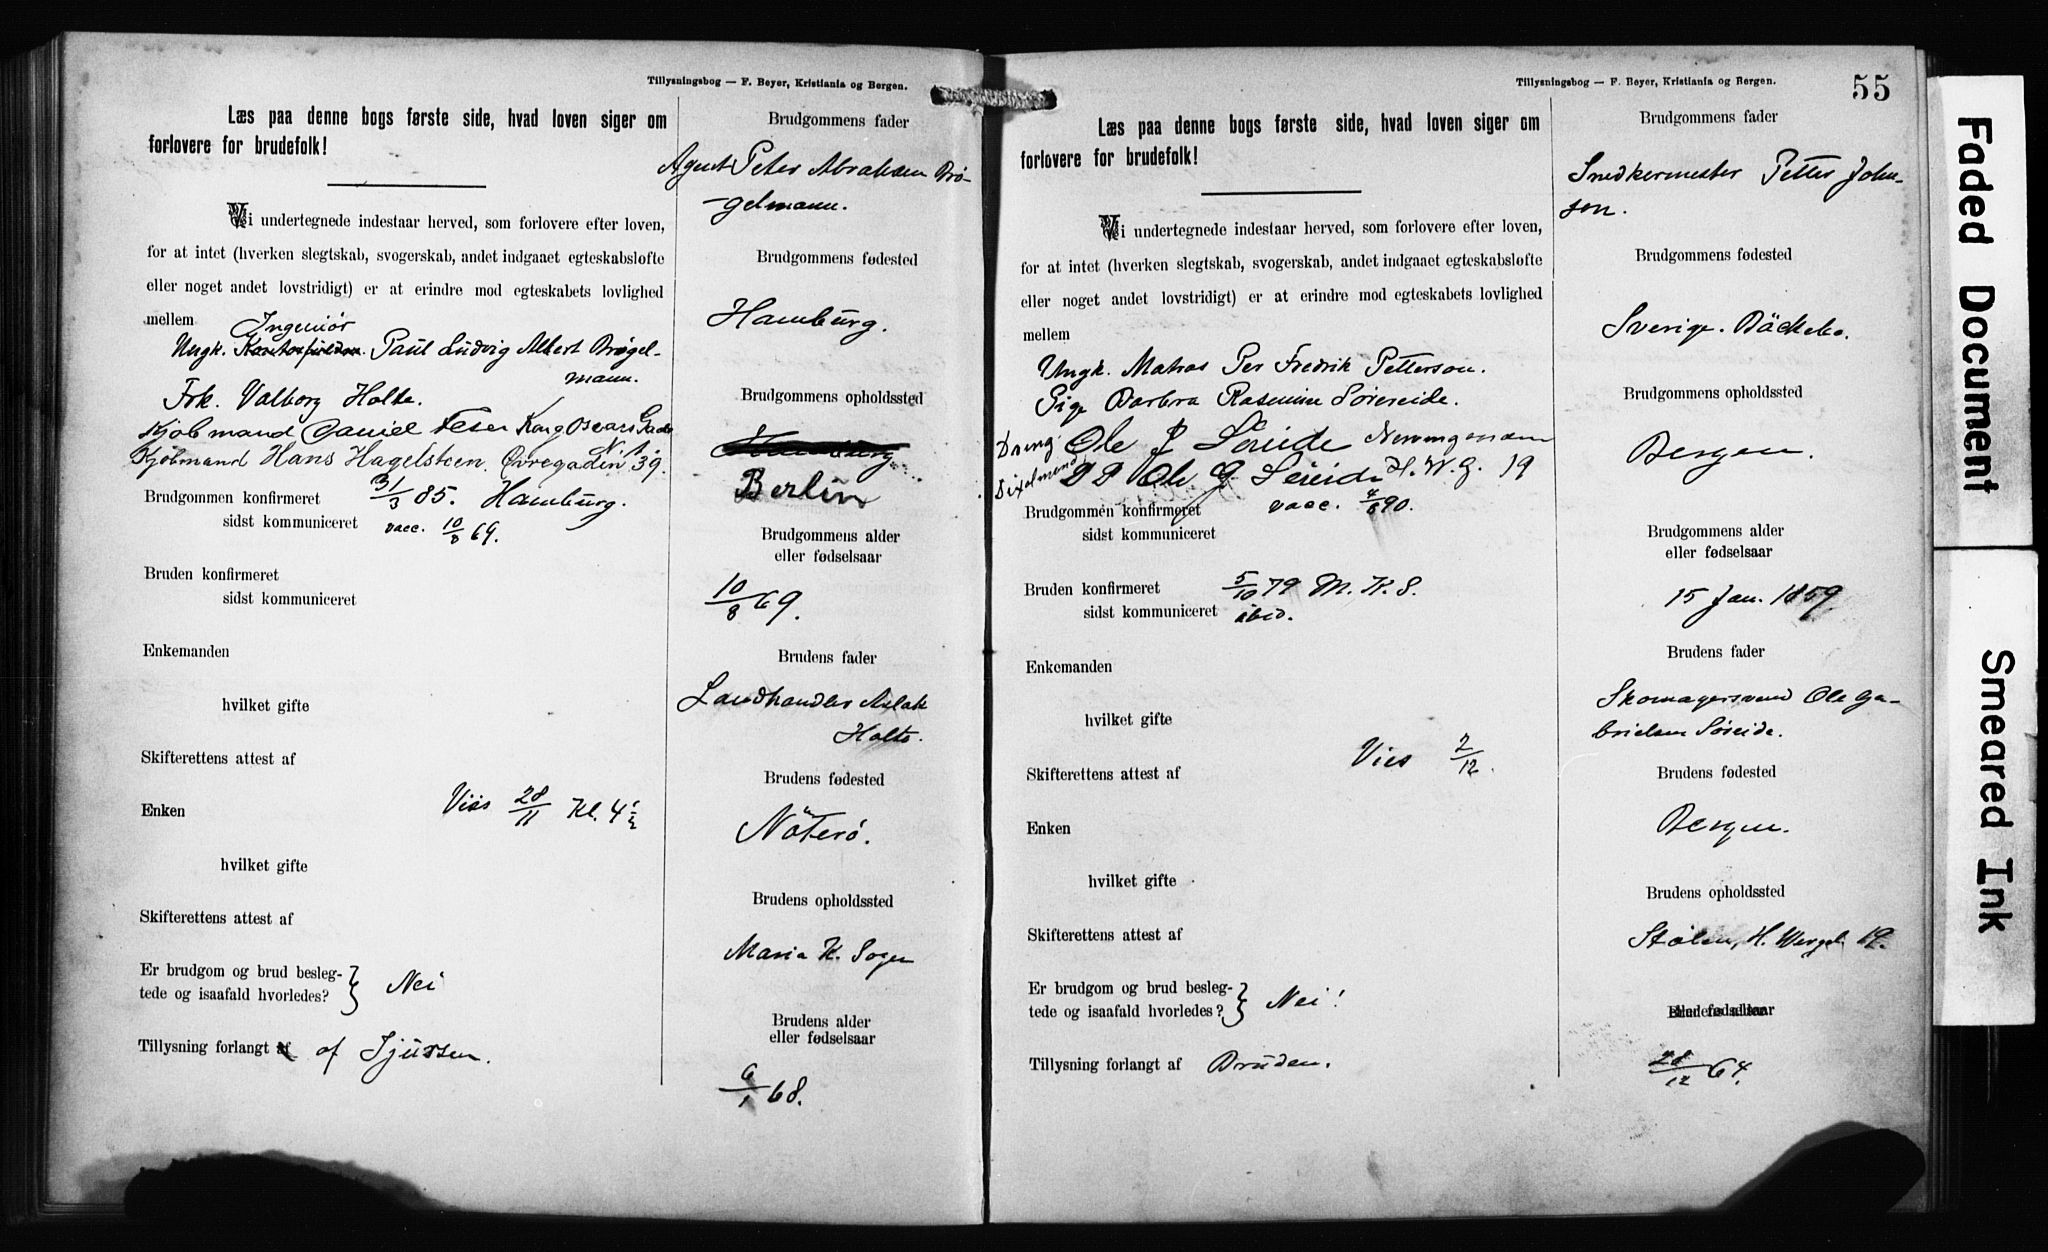 Tillysningsbog — F. Beyer, Kristiania og Bergen.
Læs paa denne bogs første side, hvad loven siger om
forlovere for brudefolk!
Vi undertegnede indestaar herved, som forlovere efter loven,
for at intet (hverken slegtskab, svogerskab, andet indgaaet egteskabsløfte
eller noget andet lovstridigt) er at erindre mod egteskabets lovlighed
mellem
Ingeniør
Ungk. Paul Ludvig Albert Brøgel-
mann.
Frk. Valborg Holte.
Kjøbmand Daniel Kong Oscars Gade
N. 1.
Kjøbmand Hans Hagelsteen. Øvregaden 39.
Brudgommen konfirmeret 31/3 85. Hamburg.
sidst kommuniceret vacc. 10/8 69.
Bruden konfirmeret
sidst kommuniceret
Enkemanden
hvilket gifte
Skifterettens attest af
Enken
Vies 28/11 Kl. 4 1/2
hvilket gifte
Skifterettens attest af
Er brudgom og brud besleg-
tede og isaafald hvorledes? } Nei
Tillysning forlangt af af Sjursen.
Brudgommens fader
Agent Peter Abraksen Brø-
gelmann.
Brudgommens fødested
Hamburg.
Brudgommens opholdssted
Hamburg
Berlin
Brudgommens alder
eller fødselsaar
10/8 69.
Brudens fader
Landhandler Aslak
Holte.
Brudens fødested
Nöterö.
Brudens opholdssted
Maria K. Sogn
Brudens alder
eller fødselsaar
6/1 68.
Tillysningsbog — F. Beyer, Kristiania og Bergen.
55
Læs paa denne bogs første side, hvad loven siger om
forlovere for brudefolk!
Vi undertegnede indestaar herved, som forlovere efter loven,
for at intet (hverken slegtskab, svogerskab, andet indgaaet egteskabsløfte
eller noget andet lovstridigt) er at erindre mod egteskabets lovlighed
mellem
Ungk. Matros Per Fredrik Petterson.
Pige Barbra Rasmine Søreide.
Ole J Söreide
Ole G Søreide H. W. G. 19
Brudgommen konfirmeret vacc. 4/8 90.
sidst kommuniceret
Bruden konfirmeret 5/10 79 M. K. S.
sidst kommuniceret ibid.
Enkemanden
hvilket gifte
Vies 2/12.
Skifterettens attest af
Enken
hvilket gifte
Skifterettens attest af
Er brudgom og brud besleg-
tede og isaafald hvorledes? } Nei!
Tillysning forlangt af Bruden.
Brudgommens fader
Snedkermester Petter John-
son.
Brudgommens fødested
Sverige. Bäckebo.
Brudgommens opholdssted
Bergen.
Brudgommens alder
eller fødselsaar
15 Jan. 1859.
Brudens fader
Skomagersvend Ole Ga-
brielsen Søreide.
Brudens fødested
Bergen.
Brudens opholdssted
Stølen, H. Wergel. 19.
Brudens alder
eller fødselsaar
28/12 64.
Faded Document
Smeared Ink